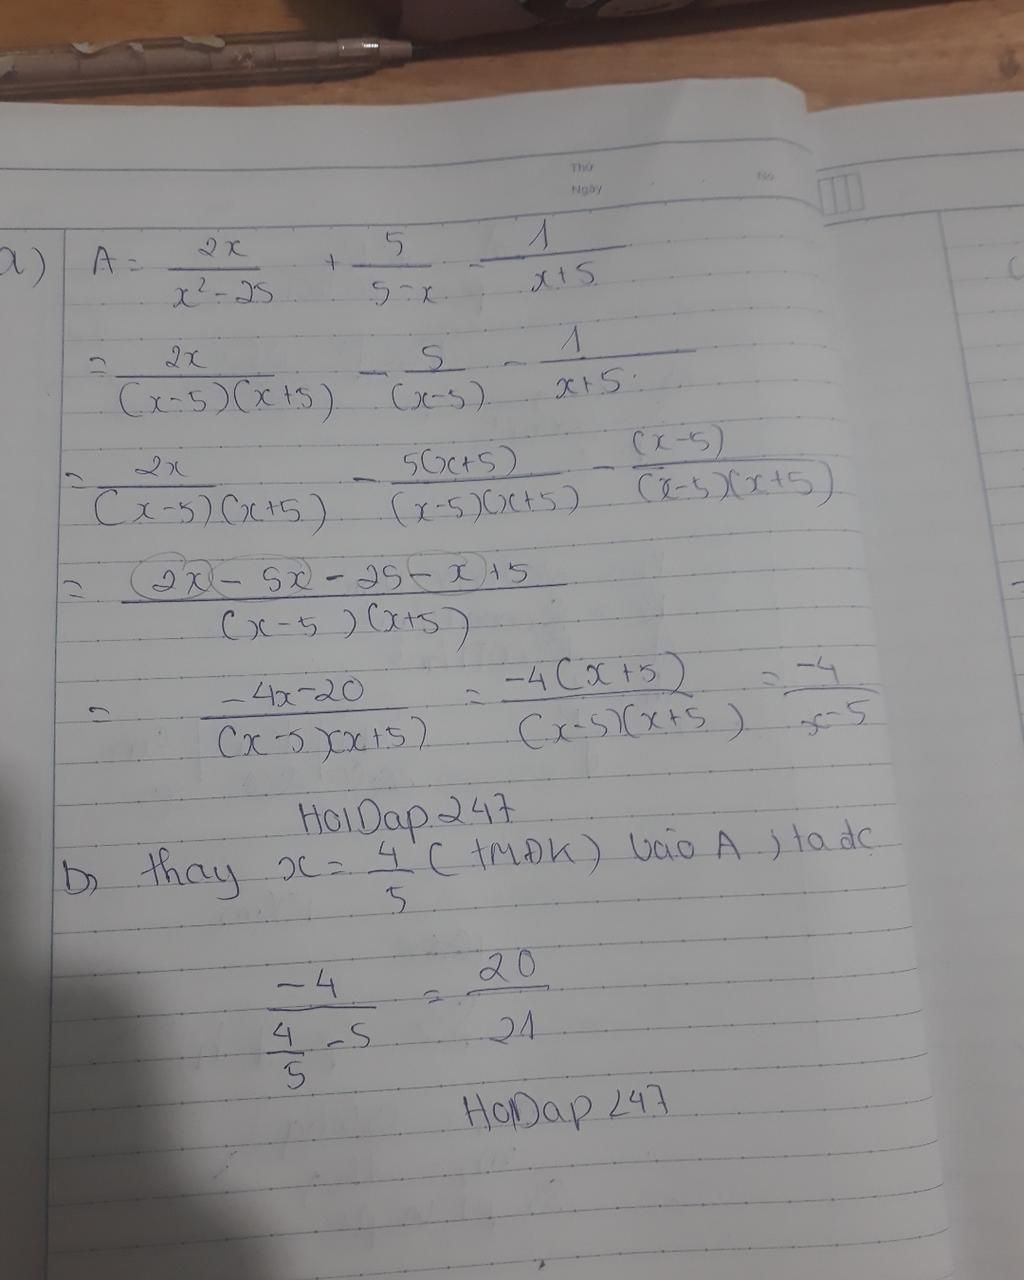 Thứ
Ngày No
a) A = \frac{2x}{x^2-25} + \frac{5}{5-x} - \frac{1}{x+5}
= \frac{2x}{(x-5)(x+5)} - \frac{5}{(x-5)} - \frac{1}{x+5}
= \frac{2x}{(x-5)(x+5)} - \frac{5(x+5)}{(x-5)(x+5)} - \frac{(x-5)}{(x-5)(x+5)}
= \frac{2x-5x-25-x+5}{(x-5)(x+5)}
= \frac{-4x-20}{(x-5)(x+5)} = \frac{-4(x+5)}{(x-5)(x+5)} = \frac{-4}{x-5}
HoiDap247
b, thay x = \frac{4}{5} (TMĐK) vào A, ta dc
\frac{-4}{\frac{4}{5}-5} = \frac{20}{21}
HoiDap247